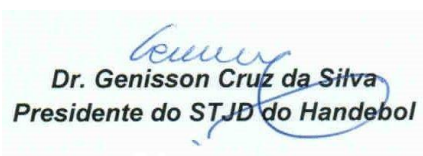 Dr. Genisson Cruz da Silva
Presidente do STJD do Handebol